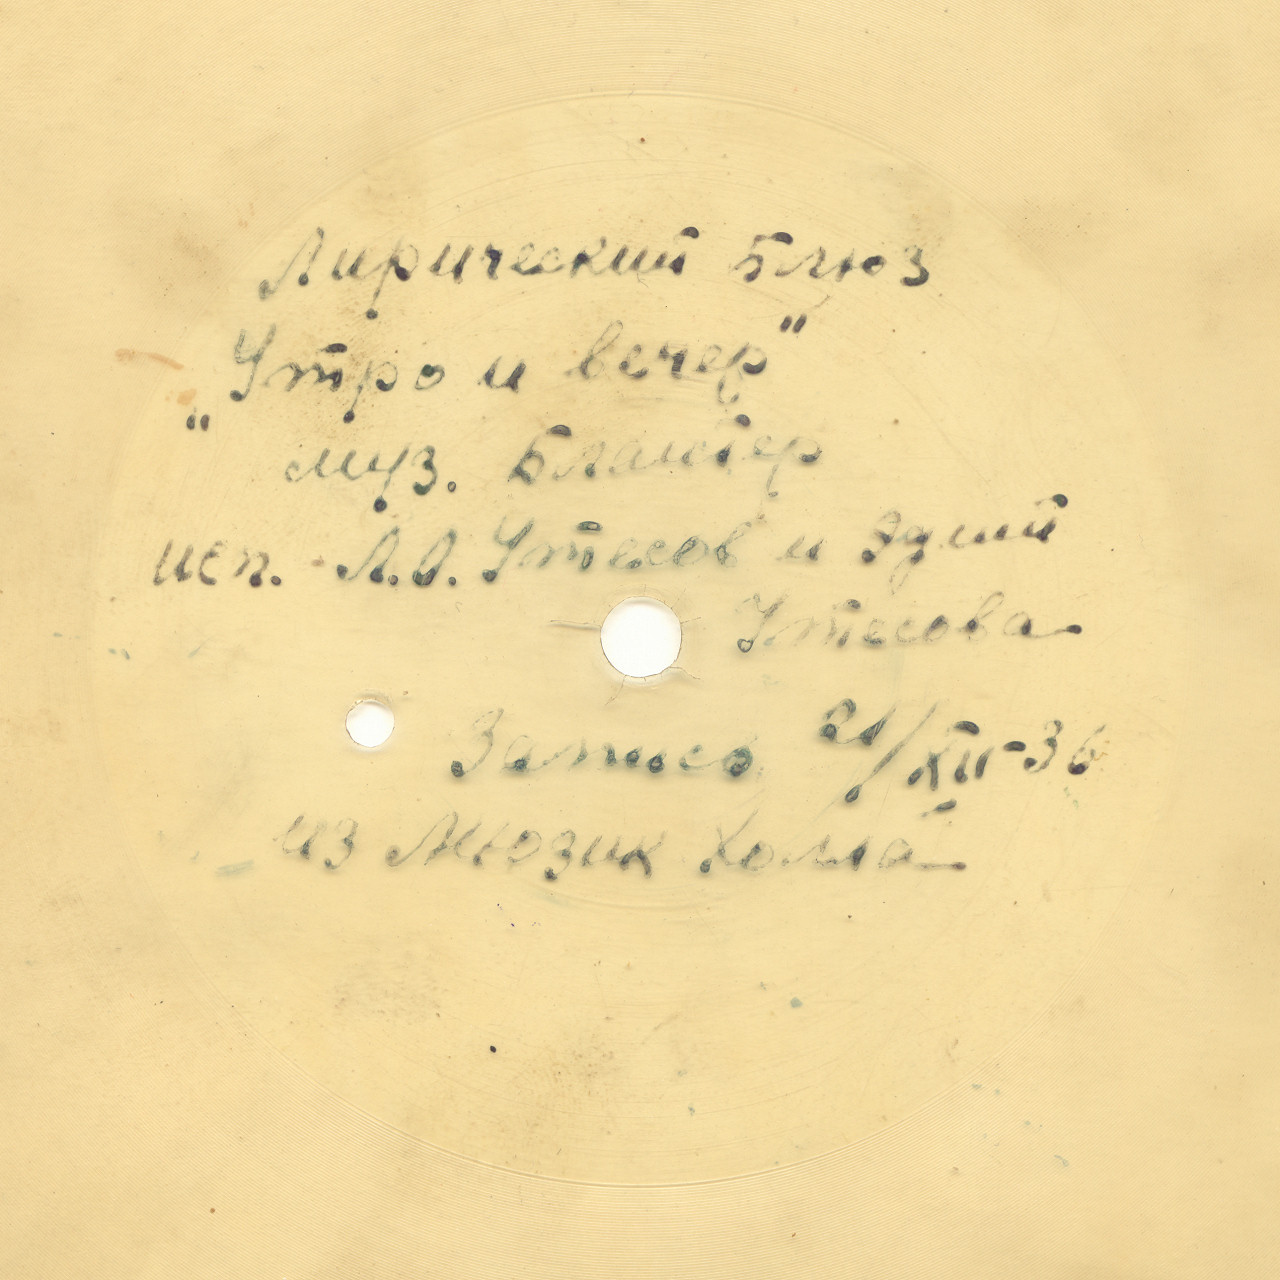 Лирический Блюз
"Утро и вечер"
муз. Блантер
исп. Л.О. Утесов и Эдит
Утесова
Запись 21/XII-36
из Мюзик Холла